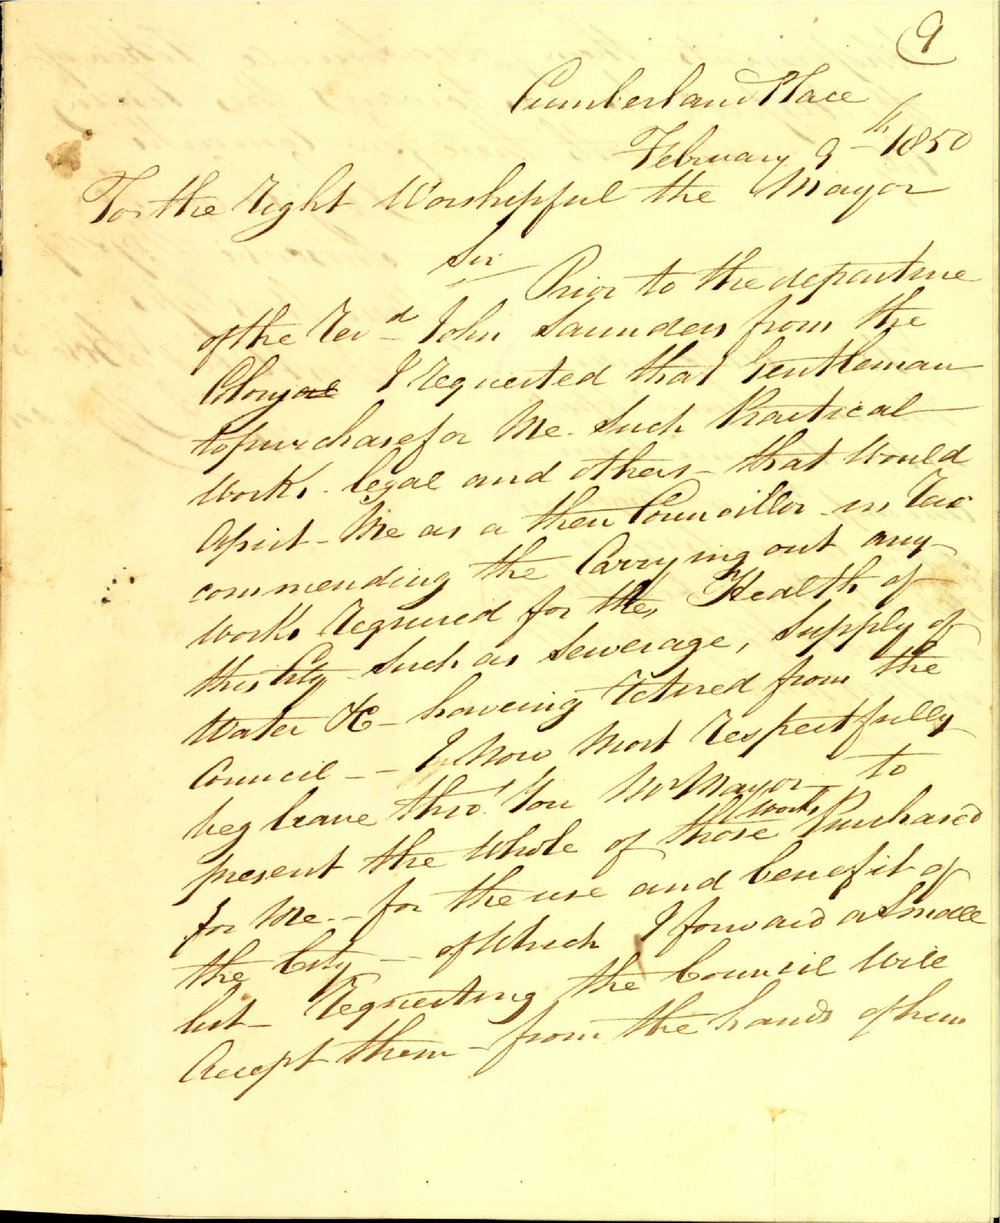 9
Cumberland Place
February 9th 1850
To the Right Worshipful the Mayor
Sir
Prior to the departure
of the Revd John Saunders from the
Colony I requested that Gentleman
to purchase for Me. Such Practical
Works. legal and others - that Would
Assist - Me as a then Councillor - in Reco
commending the Carrying out any
Works Required for the Health of
this City - Such as Sewerage, Supply of
Water &c - haveing retired from the
Council - - I Now Most Respectfully
beg leave thro' You Mr Mayor - to
present the Whole of those Works Purchased
for Me. - for the use and benefit of
the City - - of Which I forward a Smale
list - Requesting the Council Will
Accept them - from the hands of him